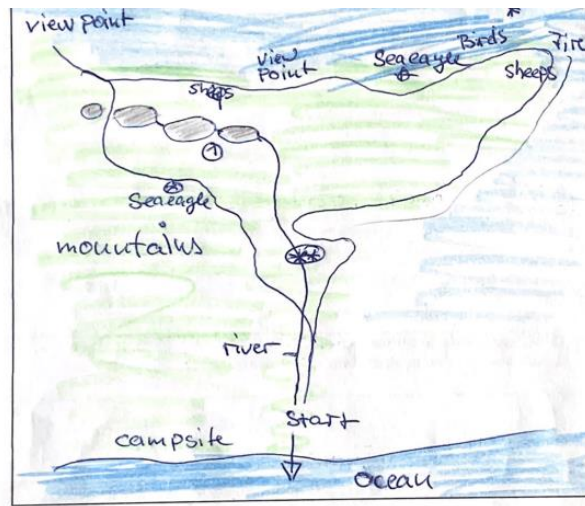 viewpoint
view
point
Seaeagle
Birds
Fire
sheeps
sheeps
1
Seaeagle
mountains
river
start
campsite
ocean